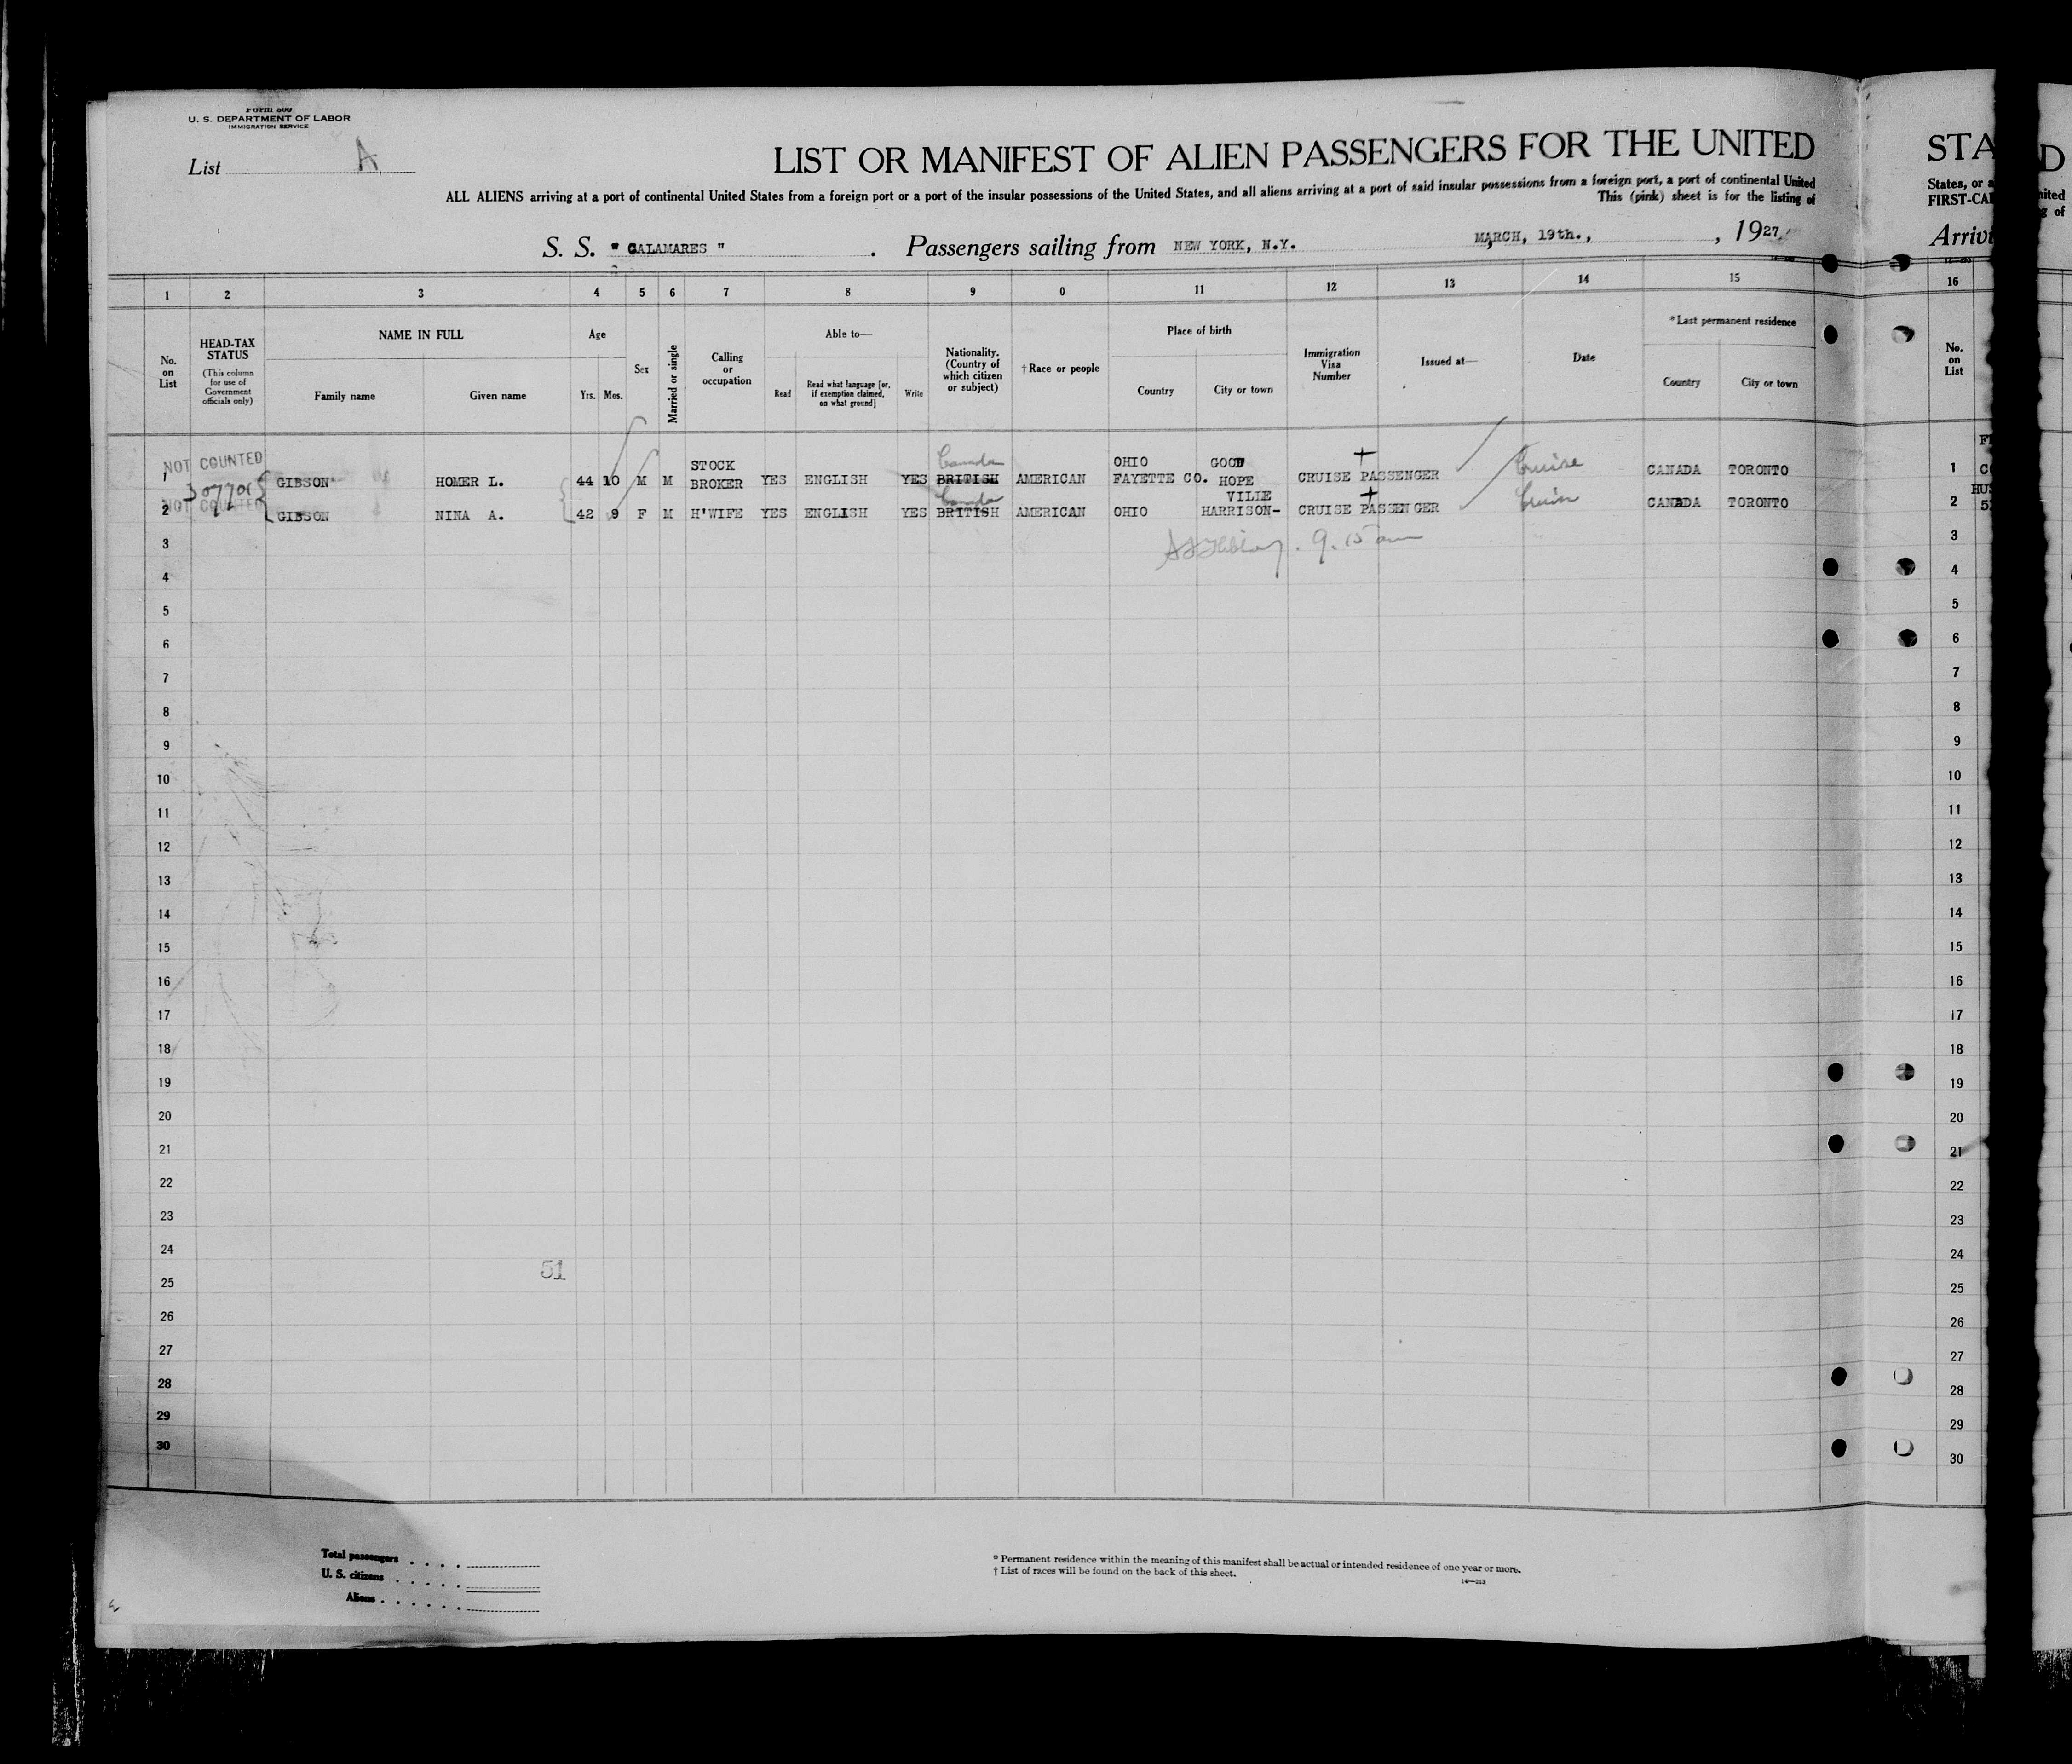 Form 500
U. S. DEPARTMENT OF LABOR
IMMIGRATION SERVICE
List A
LIST OR MANIFEST OF ALIEN PASSENGERS FOR THE UNITED
STA
ALL ALIENS arriving at a port of continental United States from a foreign port or a port of the insular possessions of the United States, and all aliens arriving at a port of said insular possessions from a foreign port, a port of continental United
This (pink) sheet is for the listing of
States, or a
FIRST-CA
S. S. " CALAMARES " . Passengers sailing from NEW YORK, N.Y. MARCH, 19th., , 1927
Arrivi
1 2 3 4 5 6 7 8 9 0 11 12 13 14 15 16
No. on List
HEAD-TAX STATUS
(This column for use of Government officials only)
NAME IN FULL
Family name Given name
Age
Yrs. Mos.
Sex
Married or single
Calling or occupation
Able to—
Read
Read what language [or, if exemption claimed, on what ground]
Write
Nationality. (Country of which citizen or subject)
† Race or people
Place of birth
Country City or town
Immigration Visa Number
Issued at—
Date
* Last permanent residence
Country City or town
No. on List
NOT COUNTED
1 GIBSON HOMER L. 44 10 M M STOCK BROKER YES ENGLISH YES BRITISH Canada AMERICAN OHIO FAYETTE CO. GOOD HOPE CRUISE PASSENGER Cruise CANADA TORONTO 1
NOT COUNTED
2 GIBSON NINA A. 42 9 F M H'WIFE YES ENGLISH YES BRITISH Canada AMERICAN OHIO HARRISON- VILLE CRUISE PASSENGER Cruise CANADA TORONTO 2
9.15 am
3
4
5
6
7
8
9
10
11
12
13
14
15
16
17
18
19
20
21
22
23
24
51
25
26
27
28
29
30
3
4
5
6
7
8
9
10
11
12
13
14
15
16
17
18
19
20
21
22
23
24
25
26
27
28
29
30
Total passengers
U. S. citizens
Aliens
* Permanent residence within the meaning of this manifest shall be actual or intended residence of one year or more.
† List of races will be found on the back of this sheet.
14—213